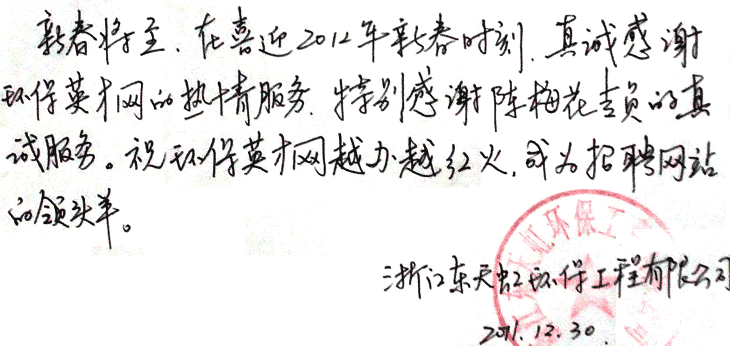 新春将至,在喜迎2012年新春时刻,真诚感谢
环保英才网的热情服务,特别感谢陈梅花专员的真
诚服务。祝环保英才网越办越红火,成为招聘网站
的领头羊。
浙江东天虹环保工程有限公司
2011.12.30
东天虹环保工